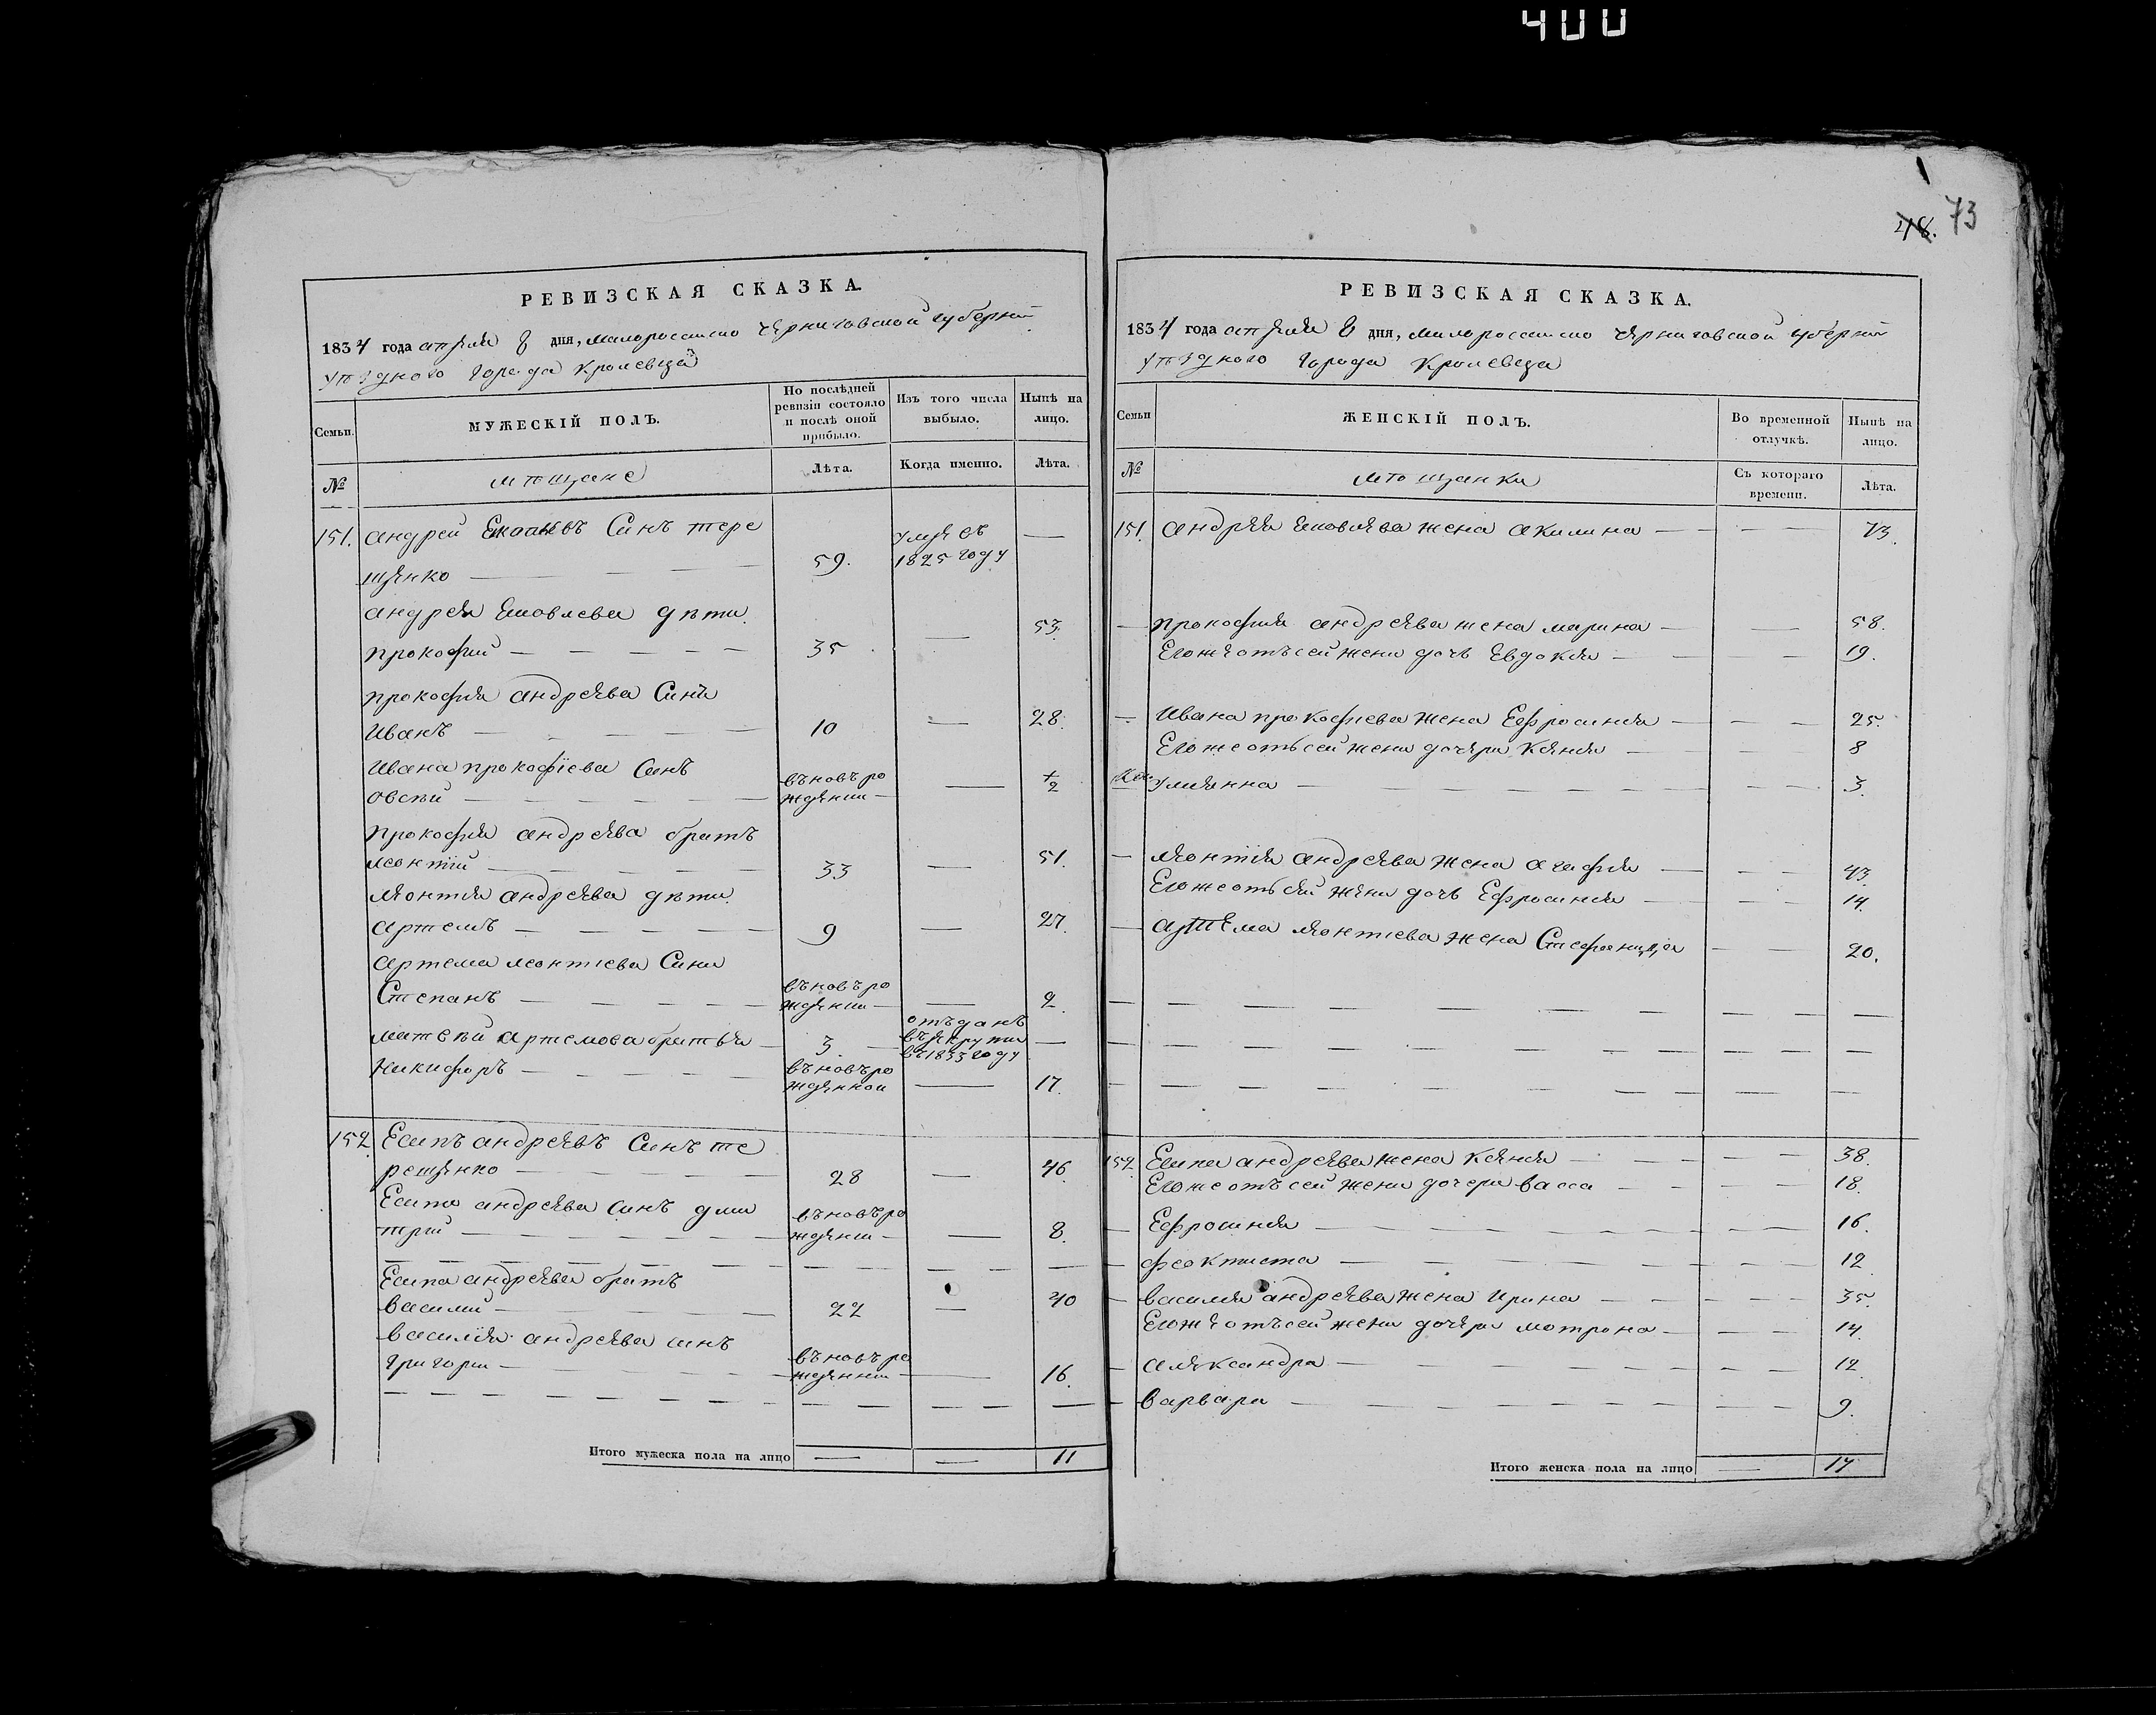 400
73
РЕВИЗСКАЯ СКАЗКА.
1834 года апреля 8 дня, малороссийско черниговской губернии
уѣздного города кролевца
Семьи.
МУЖЕСКІЙ ПОЛЪ.
По послѣдней ревизіи состояло и послѣ оной прибыло.
Изъ того числа выбыло.
Нынѣ на лицо.
№
мѣщане
Лѣта.
Когда именно.
Лѣта.
151. андрей Синъ тере
щенко — 59. умре въ 1825 году —
андрея Яковлева дѣти
прокофий — 35 — 53.
прокофия андреева Сини
Иванъ — 10 — 28.
Ивана прокофіева Синъ
овсѣй — въновъ рождении — ½
прокофия андреева братъ
леонтий — 33 — 51.
леонтия андреева дѣти
артемъ — 9 — 27.
артема леонтиева Сини
Степанъ — въновъ рождении — 2.
матвѣй артемова братья — 3. — отъданъ въ рекрути въ 1833 году —
Никифоръ — въновъ рожденной — 17.
152. Есипъ андреевъ Синъ те
рещенко — 28 — 46.
Есипа андреева синъ дми
трий — въновъ рождении — 8.
Есипа андреева братъ
василий — 22 — 40
василия андреева синъ
григорий — въновъ рождении — 16.
Итого мужеска пола на лицо — — 11
РЕВИЗСКАЯ СКАЗКА.
1834 года апреля 8 дня, малороссийско черниговской губернии
уѣздного города кролевца
Семьи
ЖЕНСКІЙ ПОЛЪ.
Во временной отлучкѣ.
Нынѣ на лицо.
№
мѣщанки
Съ котораго времени.
Лѣта.
151. андрея Яковлева жена акилина — 73.
— прокофия андреева жена марина — 58.
Егоже отъ сей жени дочъ Евдокия — 19.
— Ивана прокофиева жена Ефросиния — 25.
Егоже отъ сей жени дочери Ксения — 8
Улиянна — 3.
— леонтия андреева жена агафия — 43.
Егоже отъ сей жени дочъ Ефросиния — 14.
— артема леонтиева жена Стефанида — 20.
152. Есипа андреева жена Ксения — 38.
Егоже отъ сей жени дочери васса — 18.
— Ефросиния — 16.
— феоктиста — 12
— василия андреева жена Ирина — 35.
Егоже отъ сей жени дочери мотрона — 14.
— александра — 12.
— варвара — 9.
Итого женска пола на лицо — 17